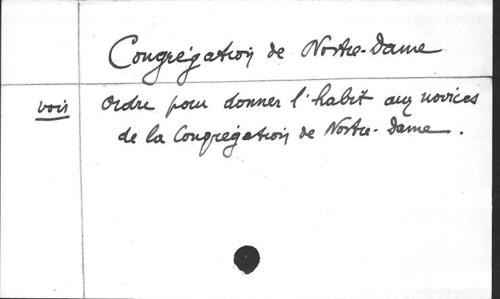 Congrégation de Nostre-Dame
voir ordre pour donner l'habit aux novices
de la Congrégation de Nostre-Dame.